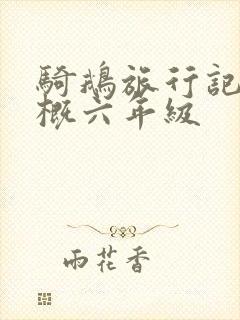 騎鵝旅行記
概六年級
雨花香